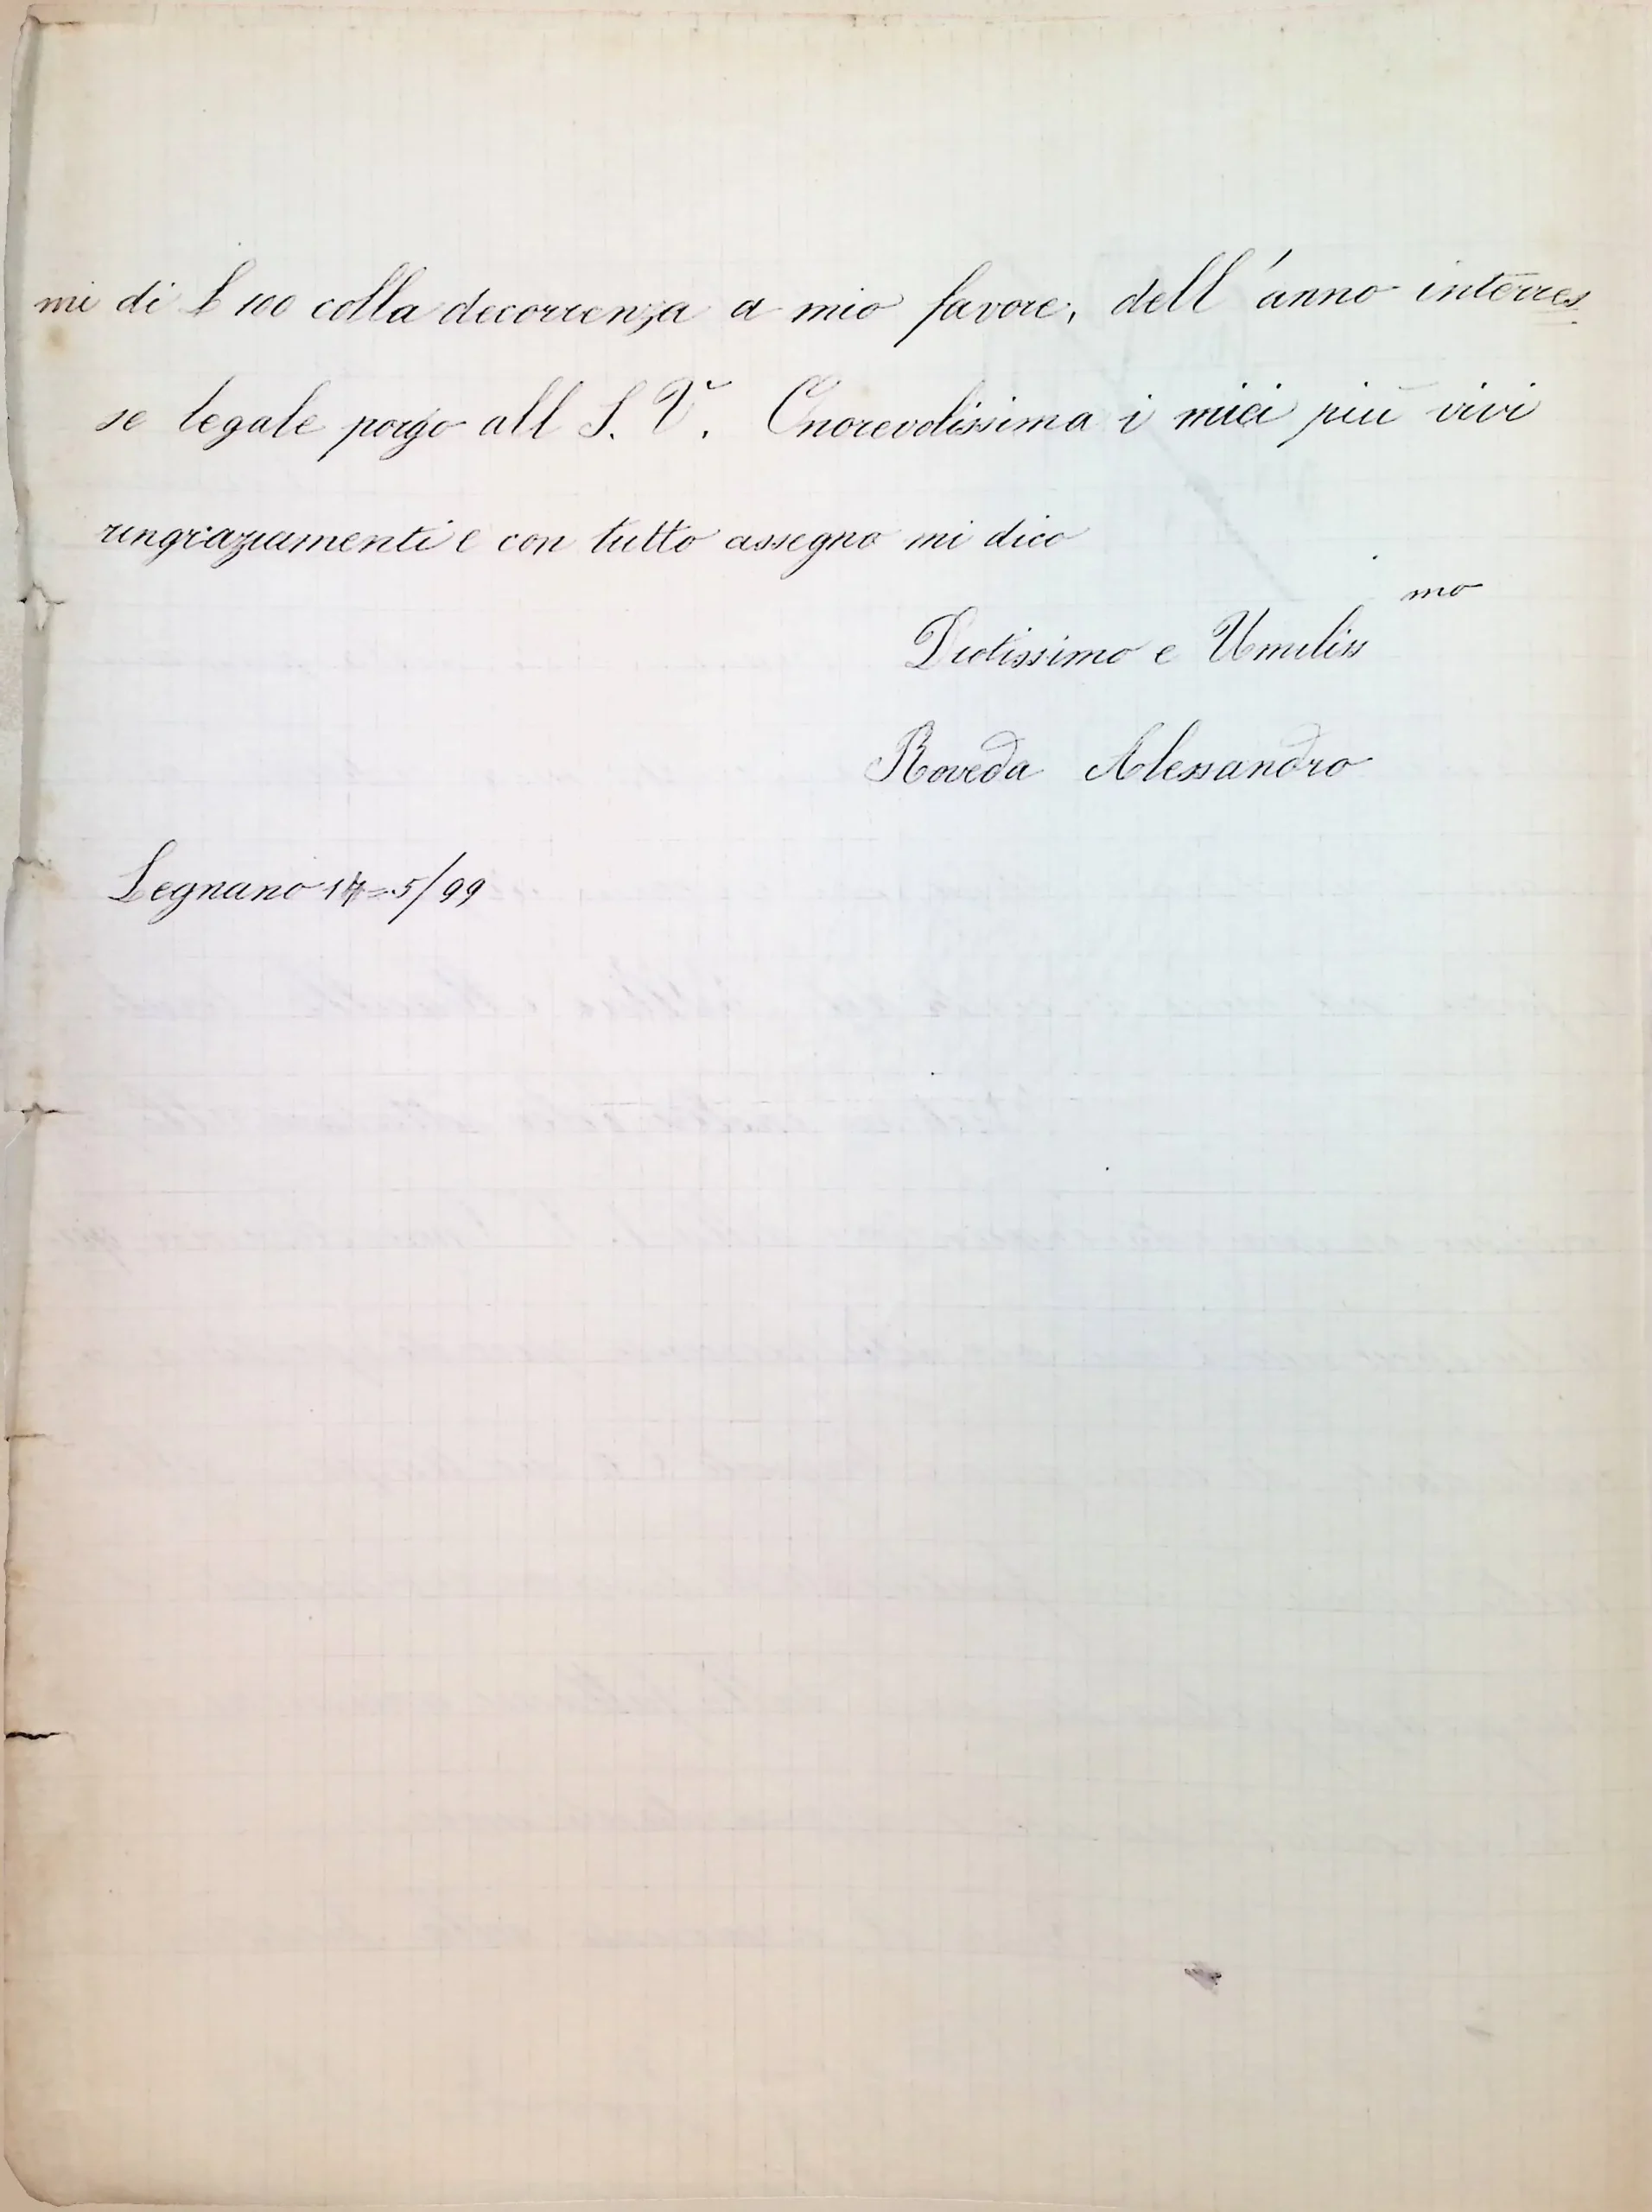 mi di £ 100 colla decorrenza a mio favore, dell'anno interres
se legale porgo all S. V. Onorevolissima i miei più vivi
ringraziamenti e con tutto assegno mi dico
mo
Dvotissimo e Umiliss
Roveda Alessandro
Legnano 5/99